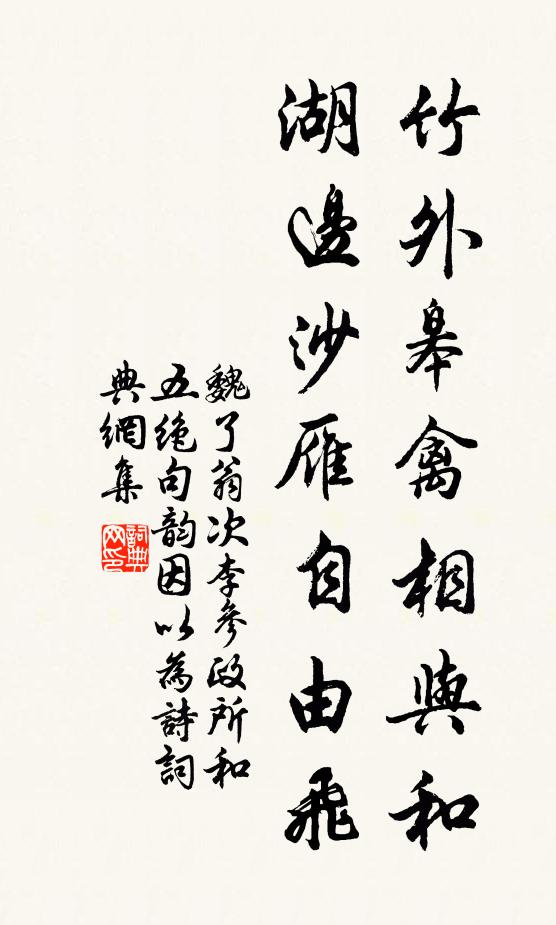 竹外皋禽相與和
湖邊沙雁自由飛
魏了翁次李參政所和
五絶句韵因以為詩詞
典網集
詞典
网印